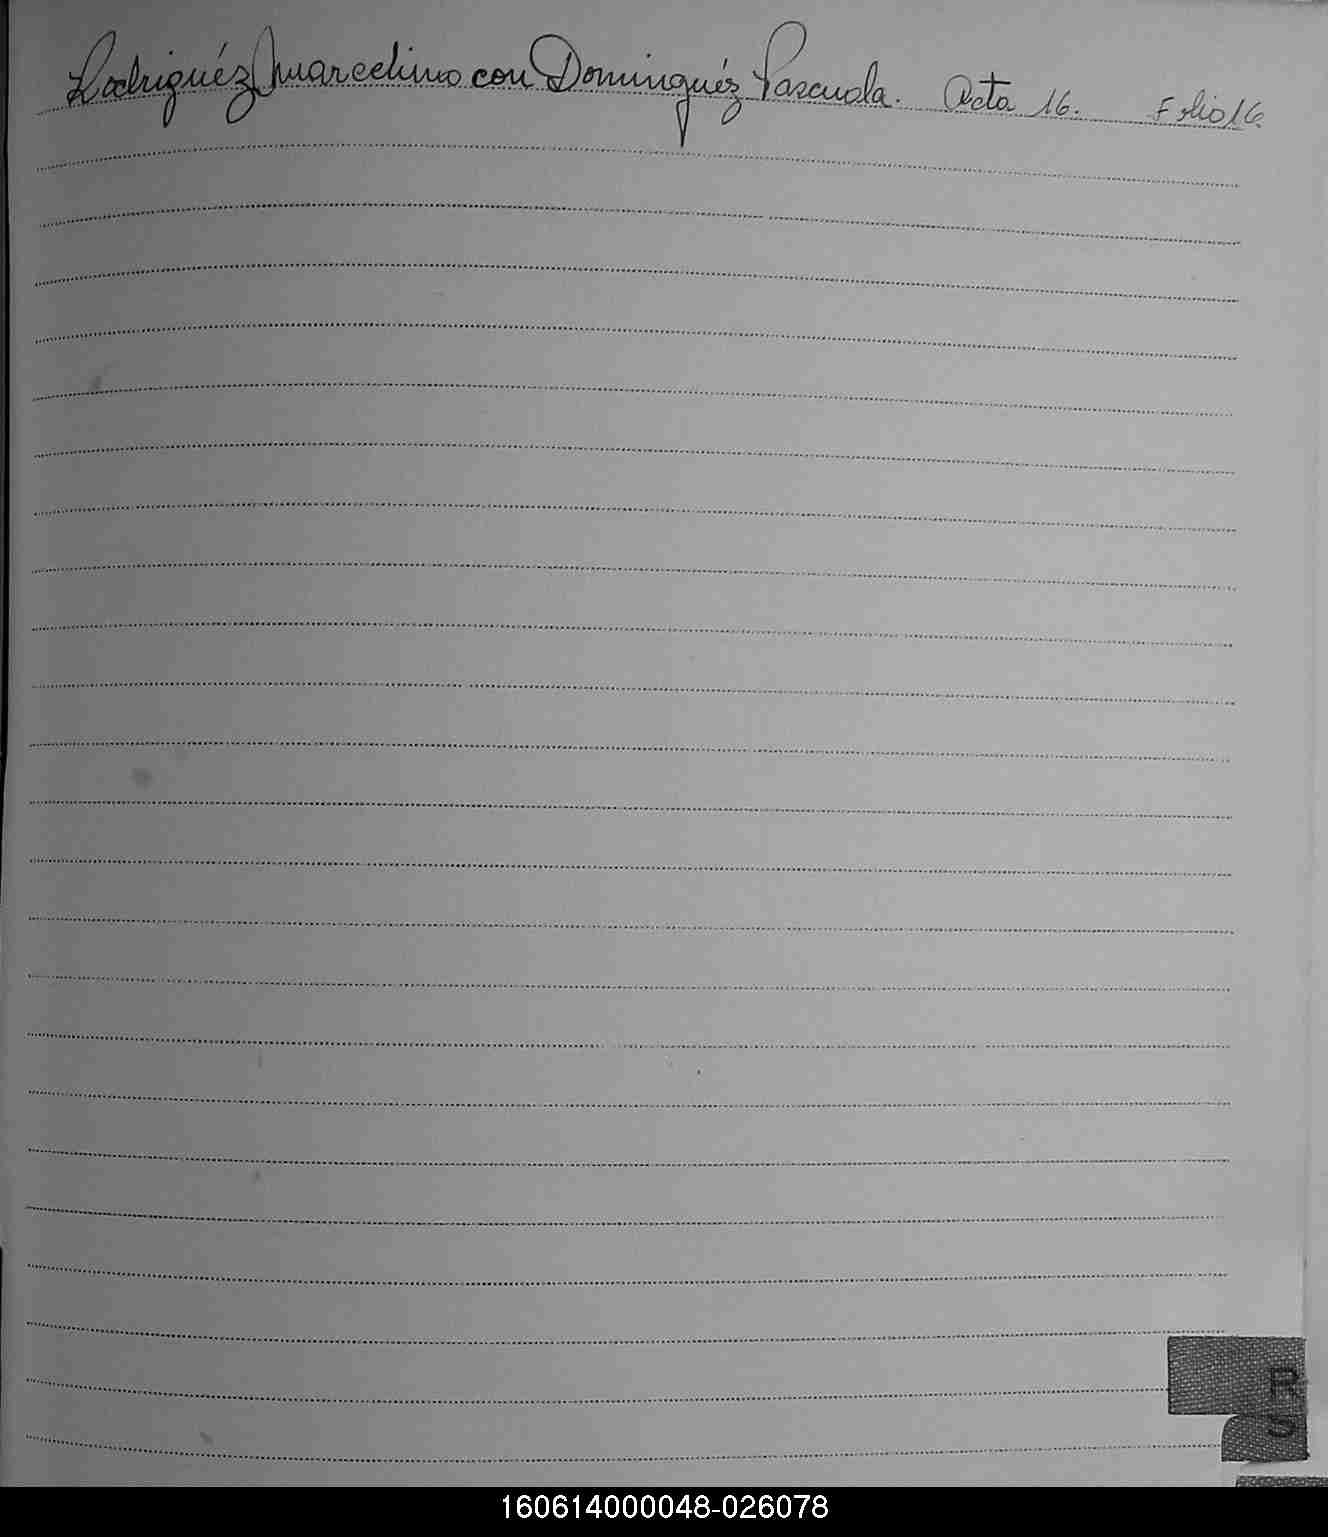 Rodriguéz Marcelino con Dominguéz Pascuala. Acta 16. Folio 16.
R
S
160614000048-026078